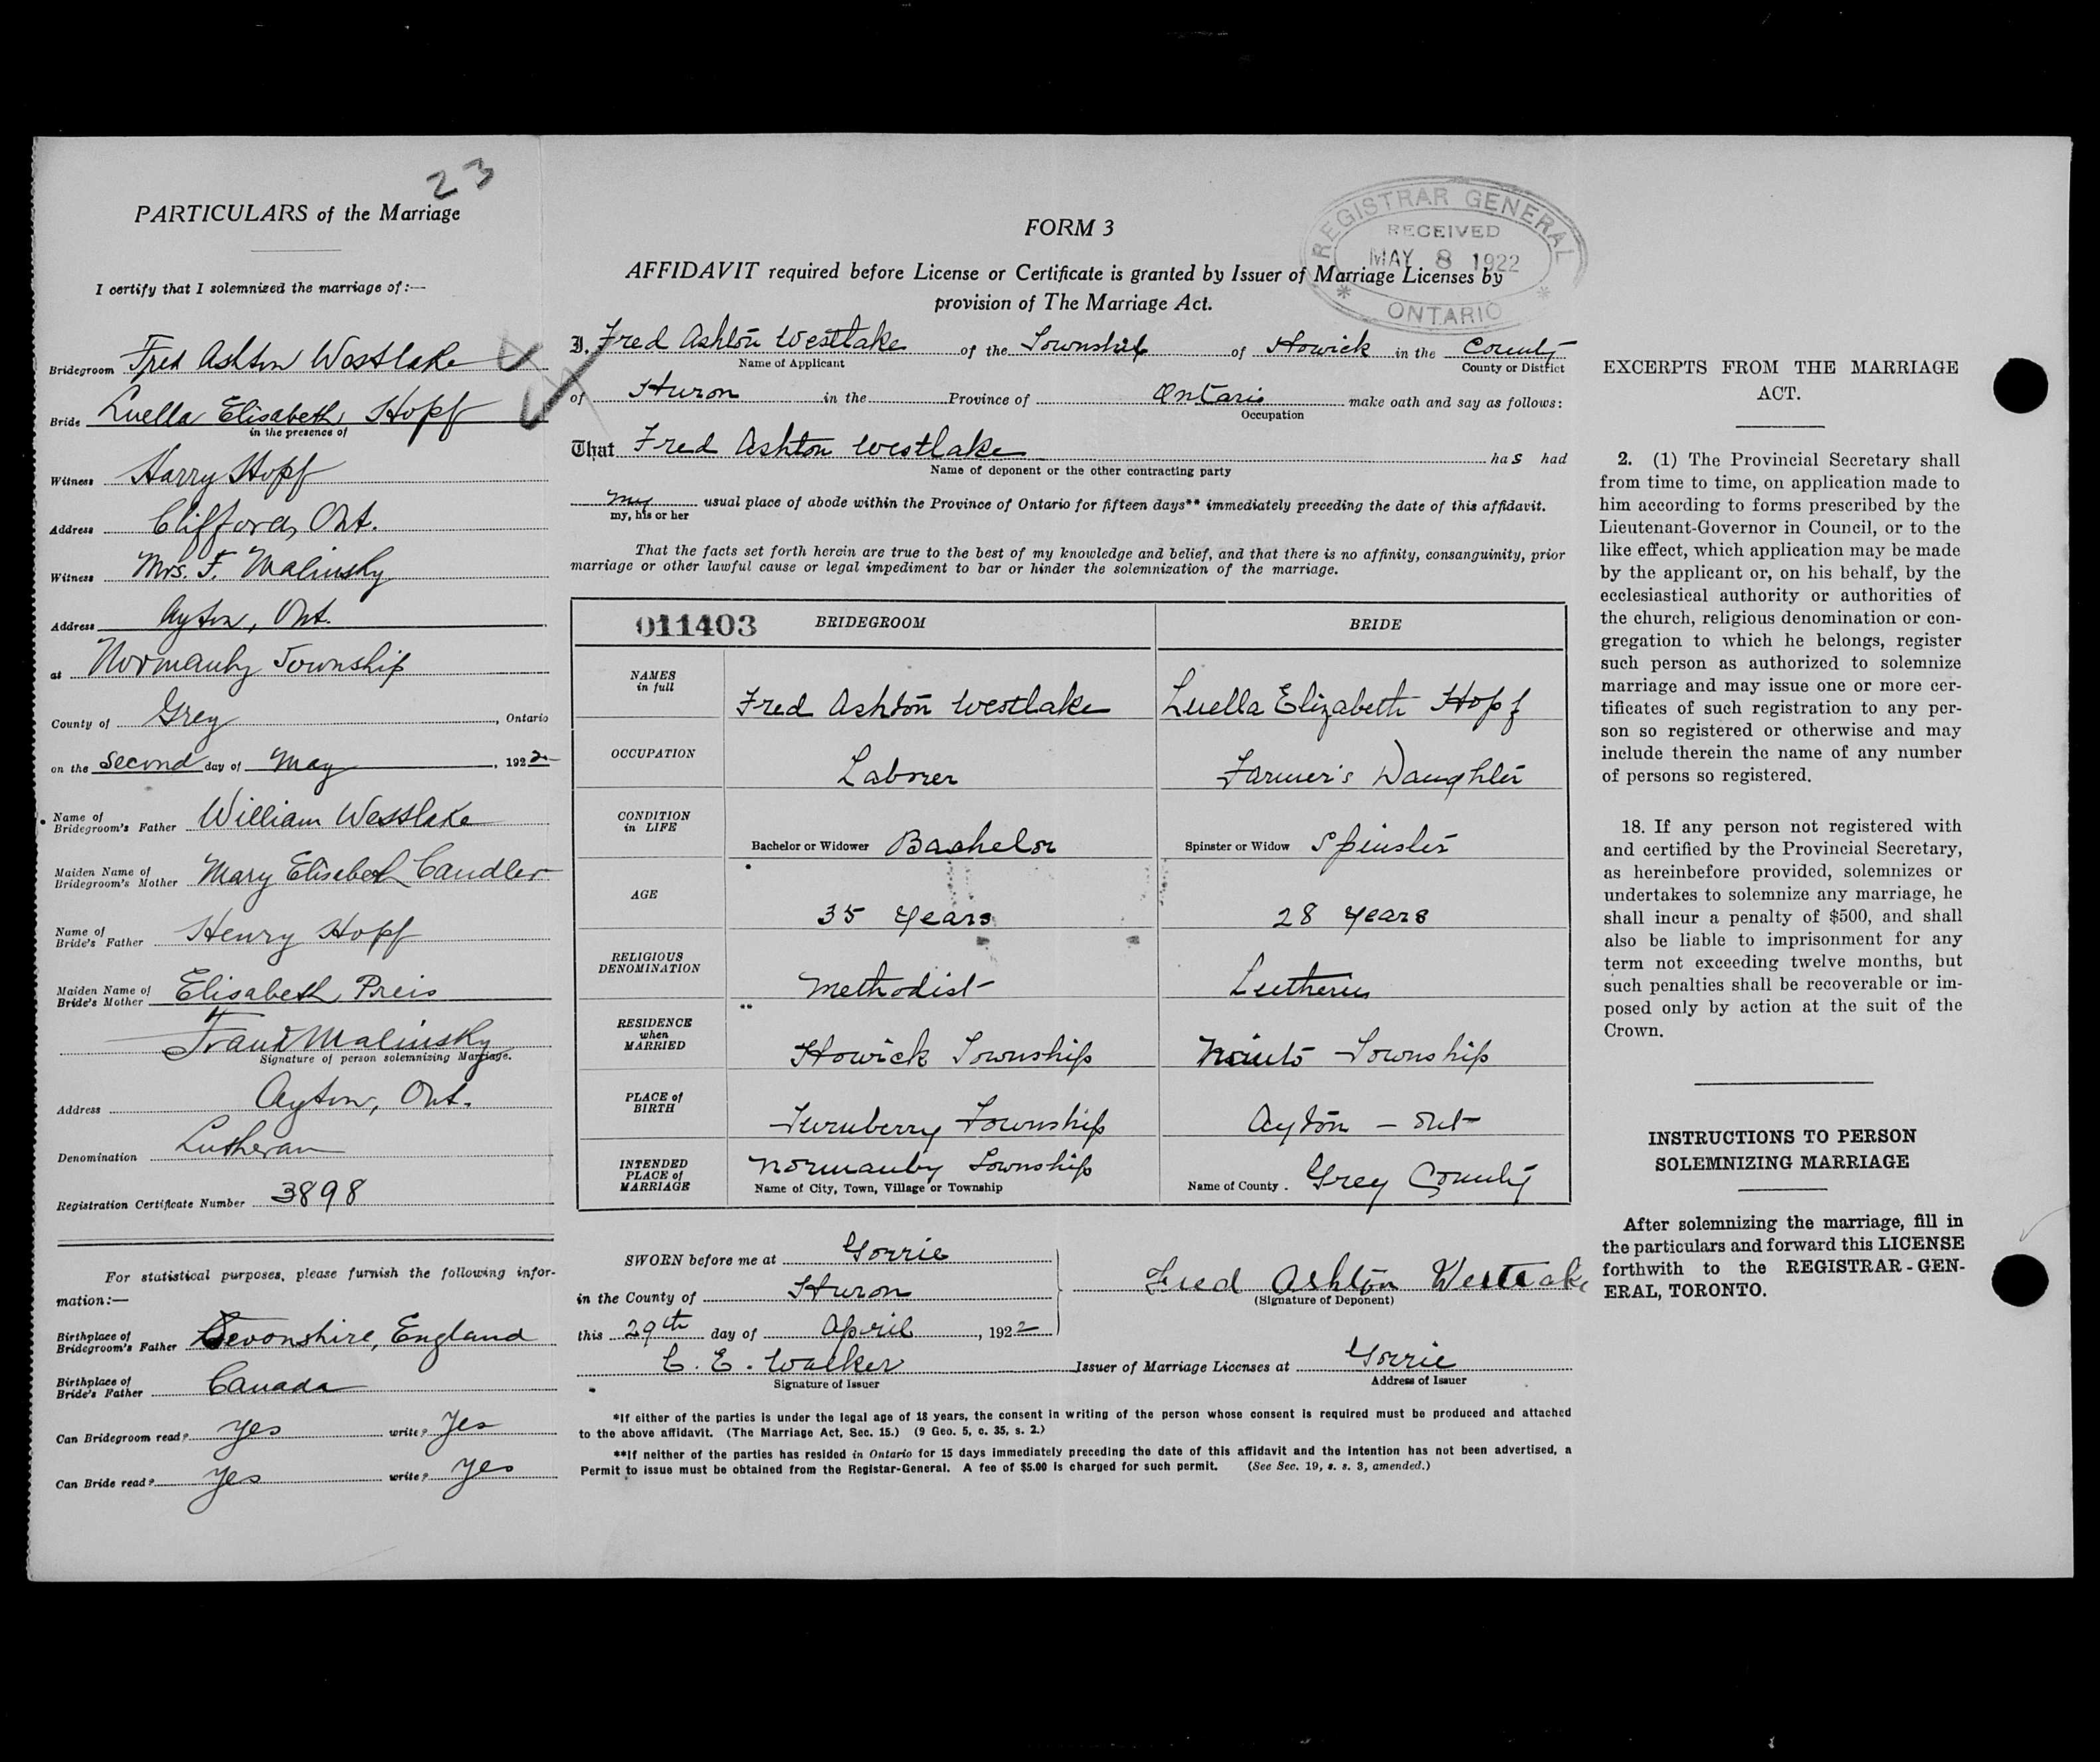 23
PARTICULARS of the Marriage
I certify that I solemnized the marriage of:—
Bridegroom Fred Ashton Westlake
Bride Luella Elisabeth Hopf
in the presence of
Witness Harry Hopf
Address Clifford, Ont.
Witness Mrs. F. Malinsky
Address Ayton, Ont.
at Normanby Township
County of Grey, Ontario
on the second day of May, 1922
Name of
Bridegroom's Father William Westlake
Maiden Name of
Bridegroom's Mother Mary Elisabeth Candler
Name of
Bride's Father Henry Hopf
Maiden Name of
Bride's Mother Elisabeth Preis
Malinsky
Signature of person solemnizing Marriage.
Address Ayton, Ont.
Denomination Lutheran
Registration Certificate Number 3898
For statistical purposes, please furnish the following infor-
mation:—
Birthplace of
Bridegroom's Father Devonshire, England
Birthplace of
Bride's Father Canada
Can Bridegroom read? yes write? yes
Can Bride read? yes write? yes
FORM 3
REGISTRAR GENERAL
RECEIVED
MAY 8 1922
ONTARIO
AFFIDAVIT required before License or Certificate is granted by Issuer of Marriage Licenses by
provision of The Marriage Act.
I, Fred Ashton Westlake of the Township of Howick in the County
Name of Applicant County or District
of Huron in the Province of Ontario make oath and say as follows:
Occupation
That Fred Ashton Westlake has had
Name of deponent or the other contracting party
my usual place of abode within the Province of Ontario for fifteen days** immediately preceding the date of this affidavit.
my, his or her
That the facts set forth herein are true to the best of my knowledge and belief, and that there is no affinity, consanguinity, prior
marriage or other lawful cause or legal impediment to bar or hinder the solemnization of the marriage.
011403 BRIDEGROOM BRIDE
NAMES
in full
Fred Ashton Westlake Luella Elizabeth Hopf
OCCUPATION
Laborer Farmer's Daughter
CONDITION
in LIFE
Bachelor or Widower Bachelor Spinster or Widow Spinster
AGE
35 years 28 years
RELIGIOUS
DENOMINATION
Methodist Lutheran
RESIDENCE
when
MARRIED
Howick Township Minto Township
PLACE of
BIRTH
Turnberry Township Ayton – Ont
INTENDED
PLACE of
MARRIAGE
Normanby Township Grey County
Name of City, Town, Village or Township Name of County.
SWORN before me at Gorrie
in the County of Huron
this 29th day of April, 1922
Fred Ashton Westlake
(Signature of Deponent)
C. E. Walker Issuer of Marriage Licenses at Gorrie
Signature of Issuer Address of Issuer
*If either of the parties is under the legal age of 18 years, the consent in writing of the person whose consent is required must be produced and attached
to the above affidavit. (The Marriage Act, Sec. 15.) (9 Geo. 5, c. 35, s. 2.)
**If neither of the parties has resided in Ontario for 15 days immediately preceding the date of this affidavit and the intention has not been advertised, a
Permit to issue must be obtained from the Registar-General. A fee of $5.00 is charged for such permit. (See Sec. 19, s. s. 3, amended.)
EXCERPTS FROM THE MARRIAGE
ACT.
2. (1) The Provincial Secretary shall
from time to time, on application made to
him according to forms prescribed by the
Lieutenant-Governor in Council, or to the
like effect, which application may be made
by the applicant or, on his behalf, by the
ecclesiastical authority or authorities of
the church, religious denomination or con-
gregation to which he belongs, register
such person as authorized to solemnize
marriage and may issue one or more cer-
tificates of such registration to any per-
son so registered or otherwise and may
include therein the name of any number
of persons so registered.
18. If any person not registered with
and certified by the Provincial Secretary,
as hereinbefore provided, solemnizes or
undertakes to solemnize any marriage, he
shall incur a penalty of $500, and shall
also be liable to imprisonment for any
term not exceeding twelve months, but
such penalties shall be recoverable or im-
posed only by action at the suit of the
Crown.
INSTRUCTIONS TO PERSON
SOLEMNIZING MARRIAGE
After solemnizing the marriage, fill in
the particulars and forward this LICENSE
forthwith to the REGISTRAR-GEN-
ERAL, TORONTO.